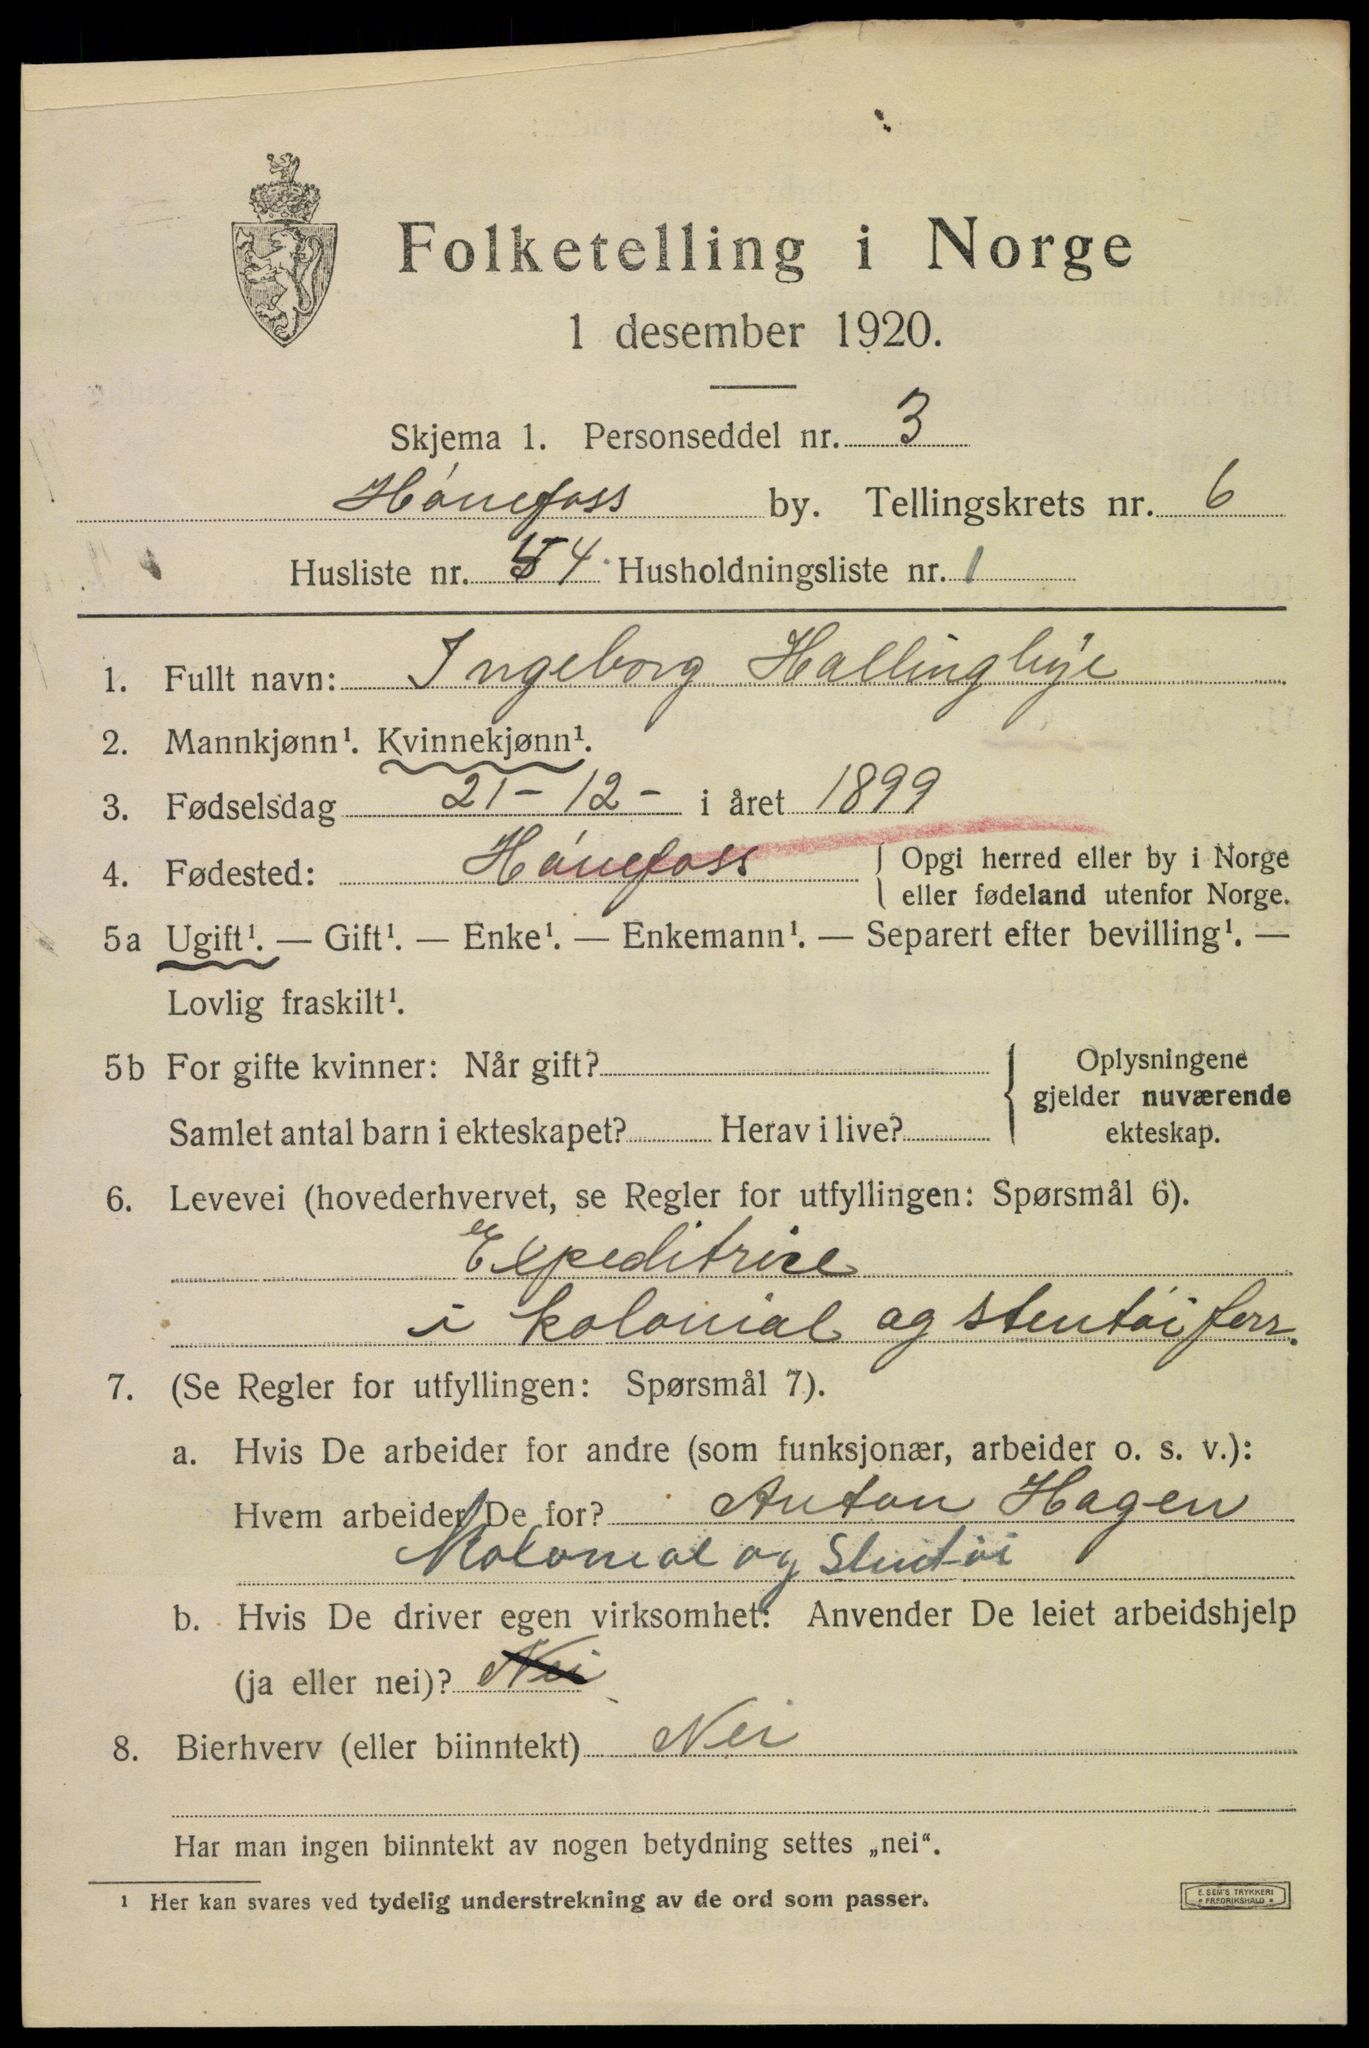 Folketelling i Norge
1 desember 1920.
Skjema 1. Personseddel nr. 3
Hónefoss by. Tellingskrets nr. 6
Husliste nr. 54 Husholdningsliste nr. 1
1. Fullt navn: Ingeborg Hallingbýe
2. Mannkjønn¹. Kvinnekjønn¹.
3. Fødselsdag 21 - 12 - i året 1899
4. Fødested: Hónefoss Opgi herred eller by i Norge
eller fødeland utenfor Norge.
5a Ugift¹. — Gift¹. — Enke¹. — Enkemann¹. — Separert efter bevilling¹. —
Lovlig fraskilt¹.
5b For gifte kvinner: Når gift? Oplysningene
gjelder nuværende
Samlet antal barn i ekteskapet? Herav i live? ekteskap.
6. Levevei (hovederhvervet, se Regler for utfyllingen: Spørsmål 6).
Expeditrise
i kolonial og stentói forr.
7. (Se Regler for utfyllingen: Spørsmål 7).
a. Hvis De arbeider for andre (som funksjonær, arbeider o. s. v.):
Hvem arbeider De for? Anton Hagen
Kolonial og Stentói
b. Hvis De driver egen virksomhet: Anvender De leiet arbeidshjelp
(ja eller nei)? Nei
8. Bierhverv (eller biinntekt) Nei
Har man ingen biinntekt av nogen betydning settes „nei“.
¹ Her kan svares ved tydelig understrekning av de ord som passer.
E. SEM'S TRYKKERI
FREDRIKSHALD